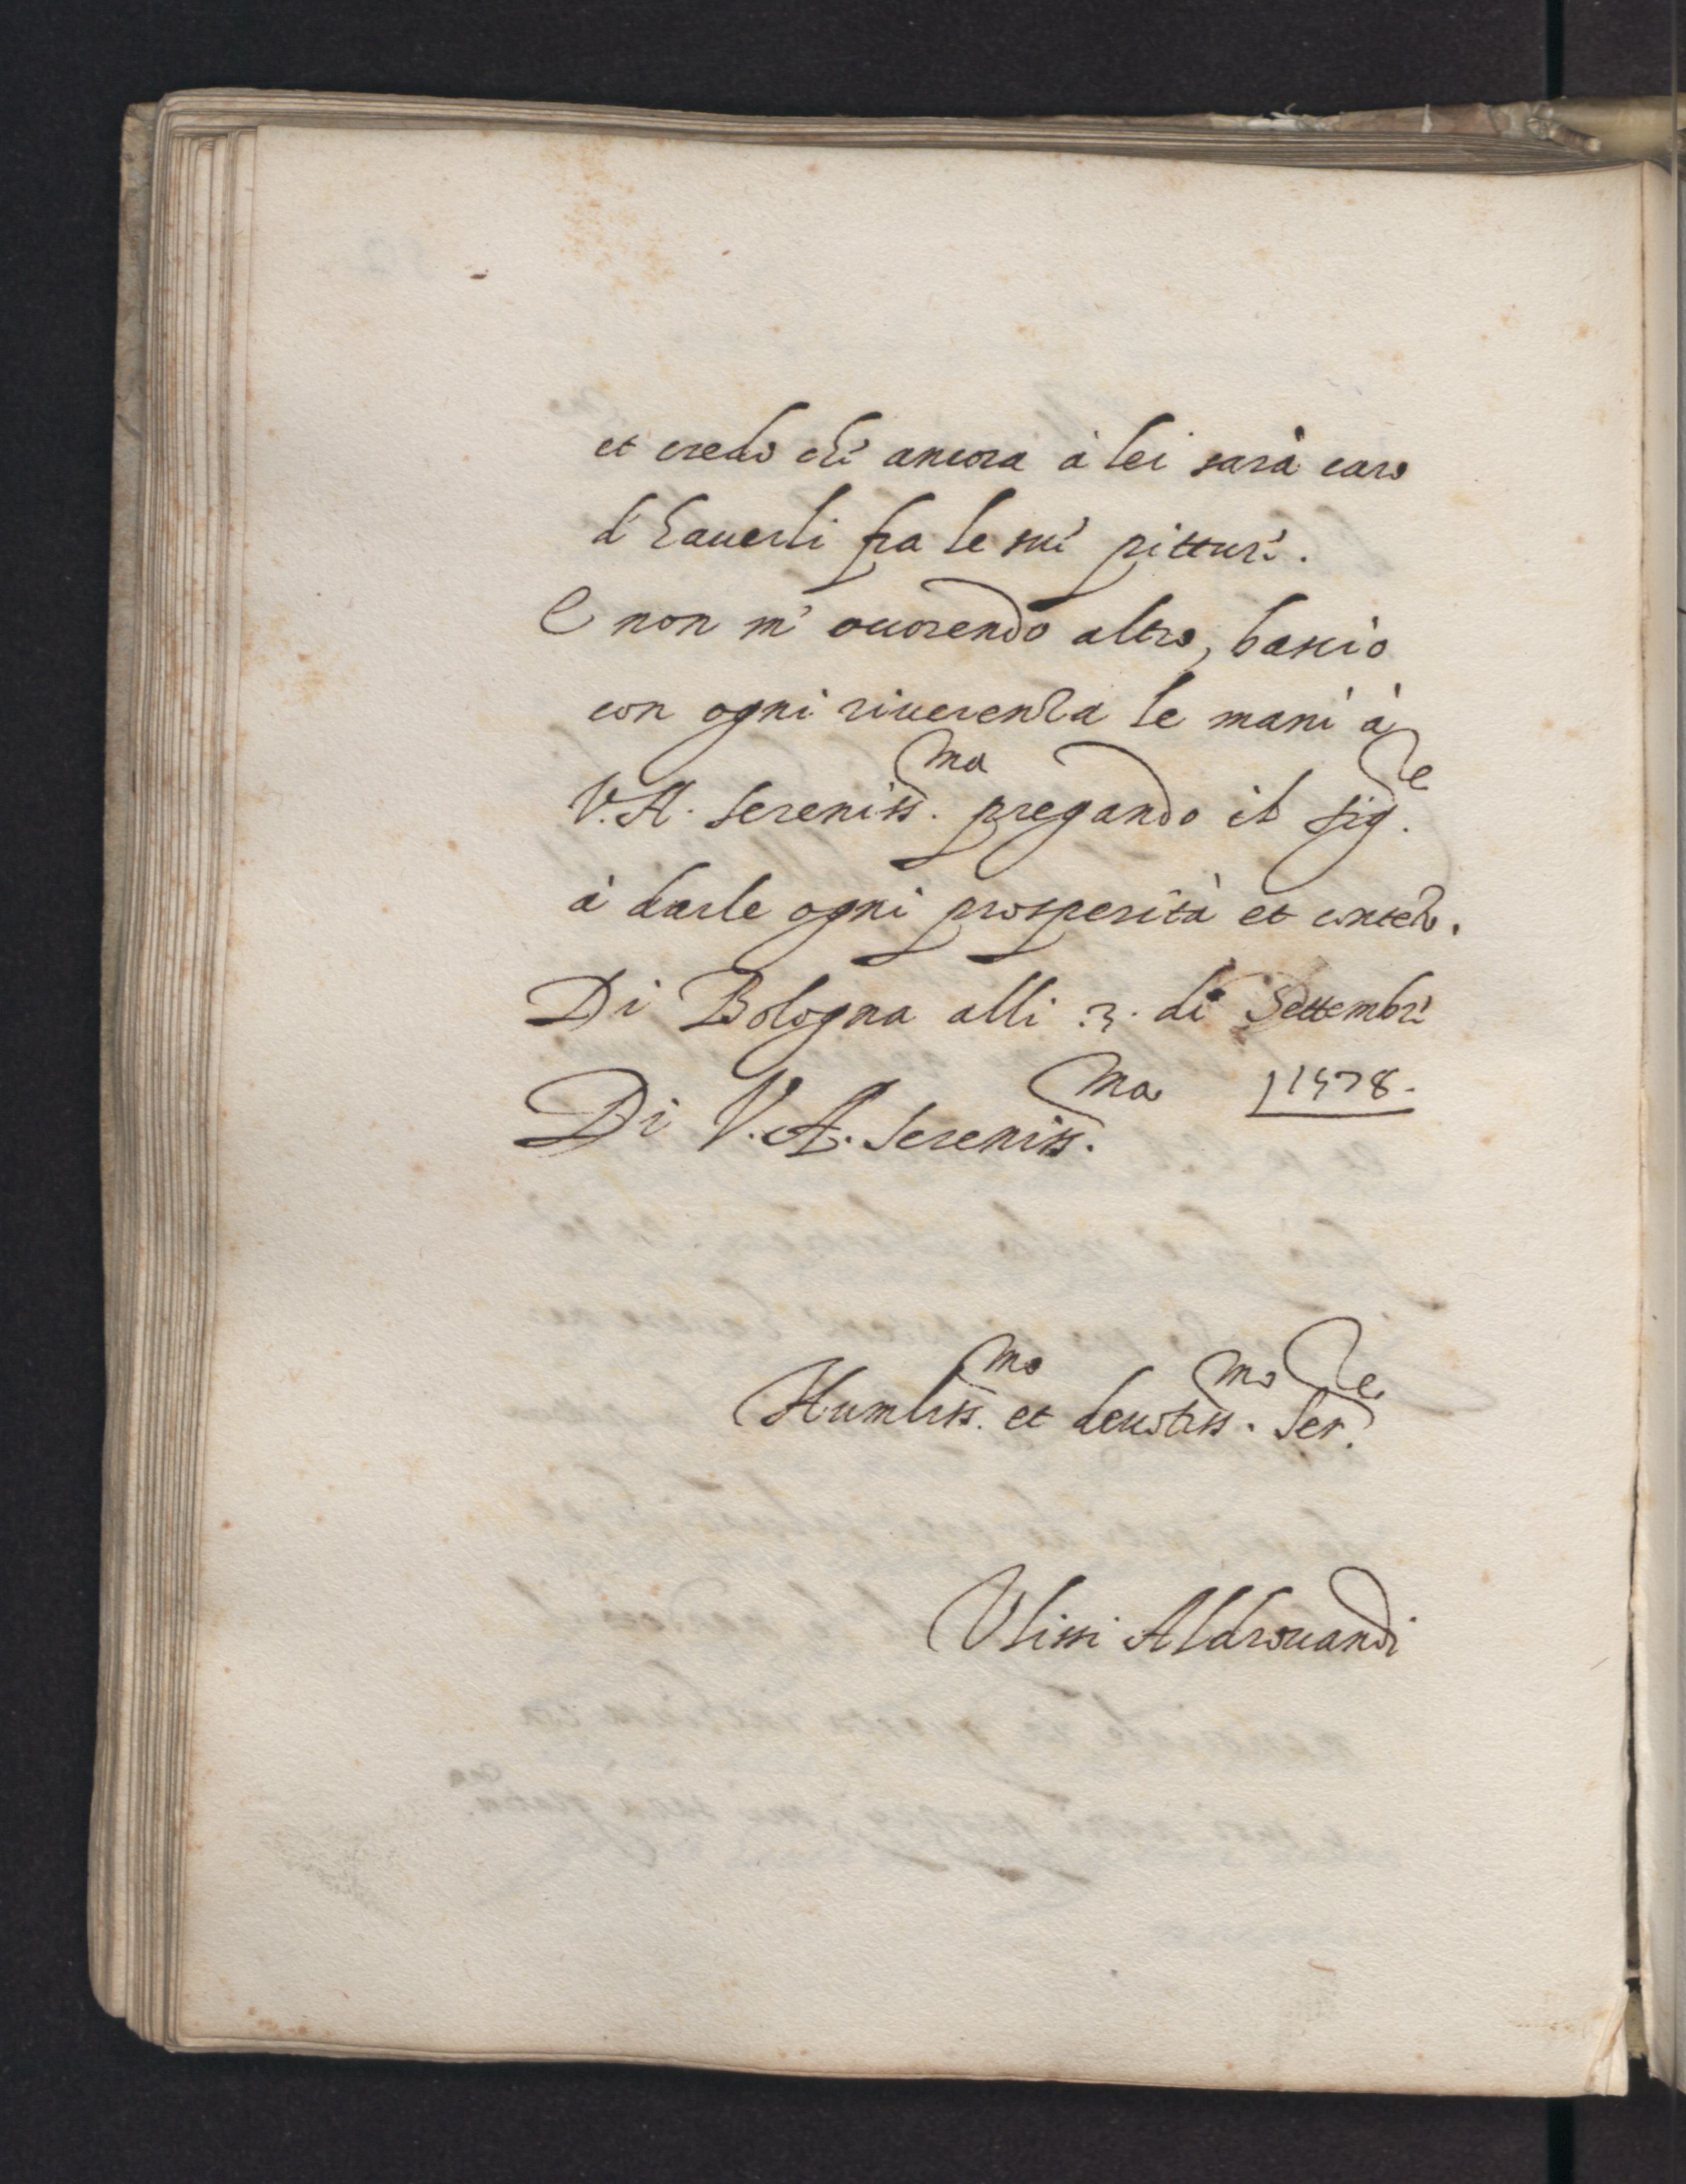 et credo che ancora à lei sarà caro
d'hauerli fra le sue pitture.
E non m' occorrendo altro, bascio
con ogni riuerenza le mani à
V. A. Sereniss.ma pregando il Sig.e
à darle ogni prosperità et contento.
Di Bologna alli 3. di Settembre
1578.
Di V. A. Sereniss.ma
Humliss.mo et deuotiss.mo Ser.e
Vlisse Aldrouandi